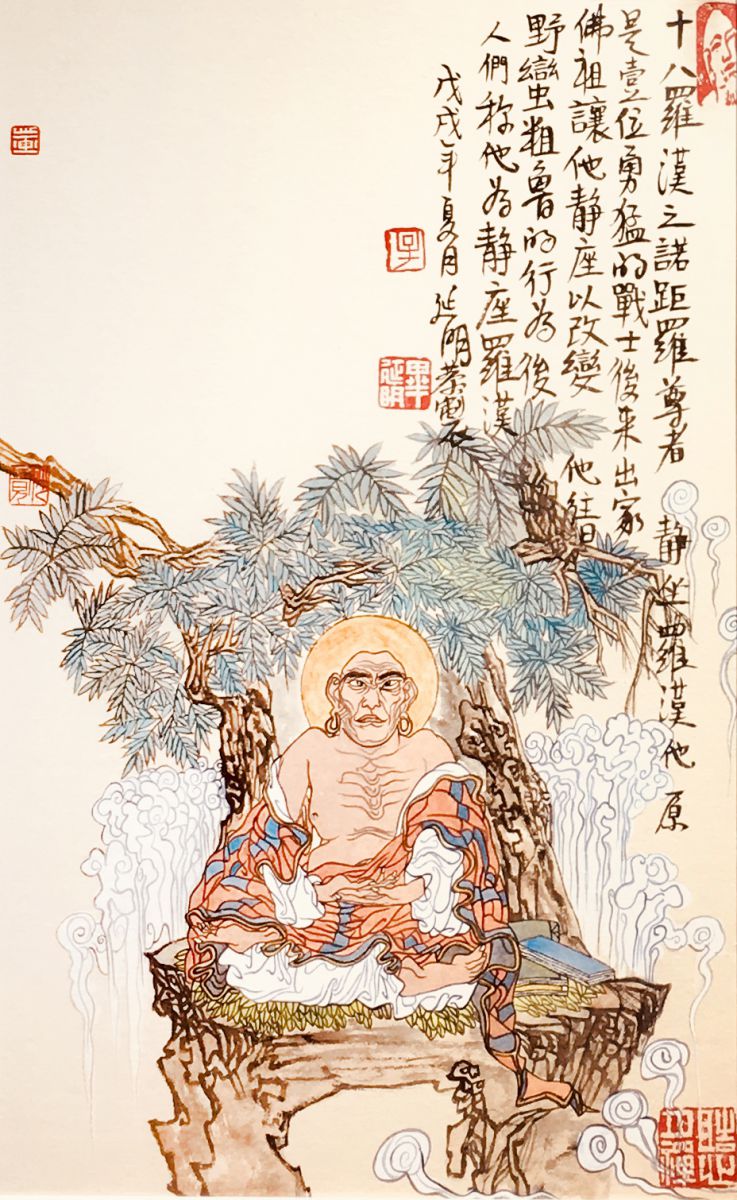 十八羅漢之諾距羅尊者 靜坐羅漢他原
是壹位勇猛的戰士後来出家
佛祖讓他靜座以改變 他往日
野蠻粗魯的行為後
人們称他為靜座羅漢
戊戌年夏月延明
畢延明